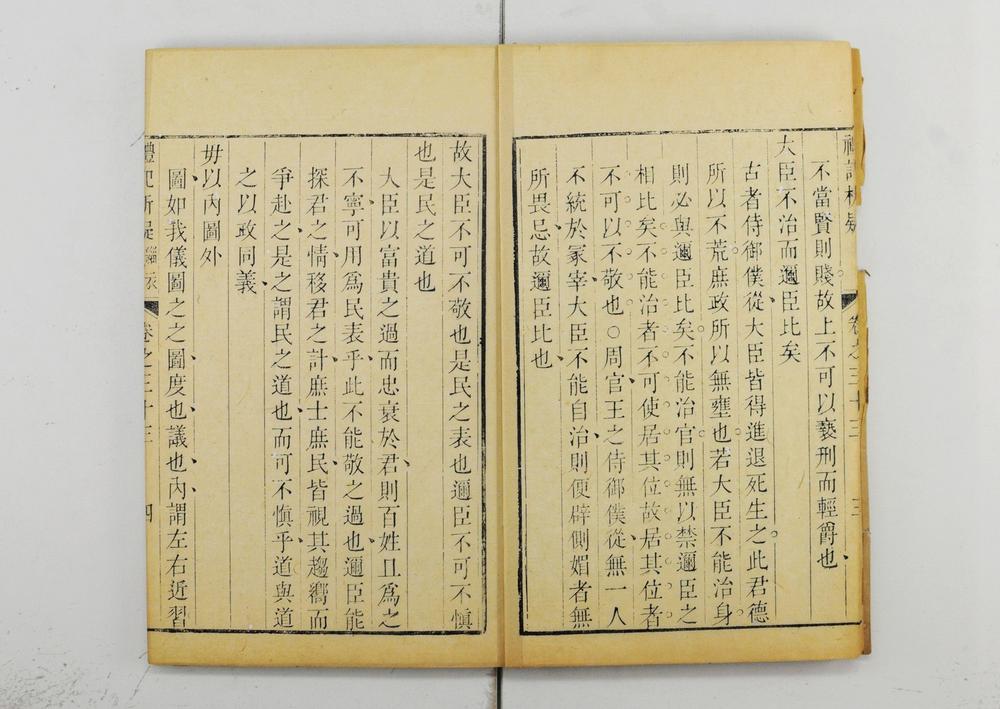 禮記析疑 卷之三十三 三
不當賢則賤故上不可以褻刑而輕爵也
大臣不治而邇臣比矣
古者侍御僕從大臣皆得進退死生之此君德
所以不荒庶政所以無壅也若大臣不能治身
則必與邇臣比矣不能治官則無以禁邇臣之
相比矣不能治者不可使居其位故居其位者
不可以不敬也○周官王之侍御僕從無一人
不統於冢宰大臣不能自治則便辟側媚者無
所畏忌故邇臣比也
故大臣不可不敬也是民之表也邇臣不可不慎
也是民之道也
大臣以富貴之過而忠衰於君則百姓且為之
不寧可用為民表乎此不能敬之過也邇臣能
探君之情移君之計庶士庶民皆視其趨嚮而
爭赴之是之謂民之道也而可不慎乎道與道
之以政同義
毋以內圖外
圖如我儀圖之之圖度也議也內謂左右近習
禮記析疑 緇衣 卷之三十三 四